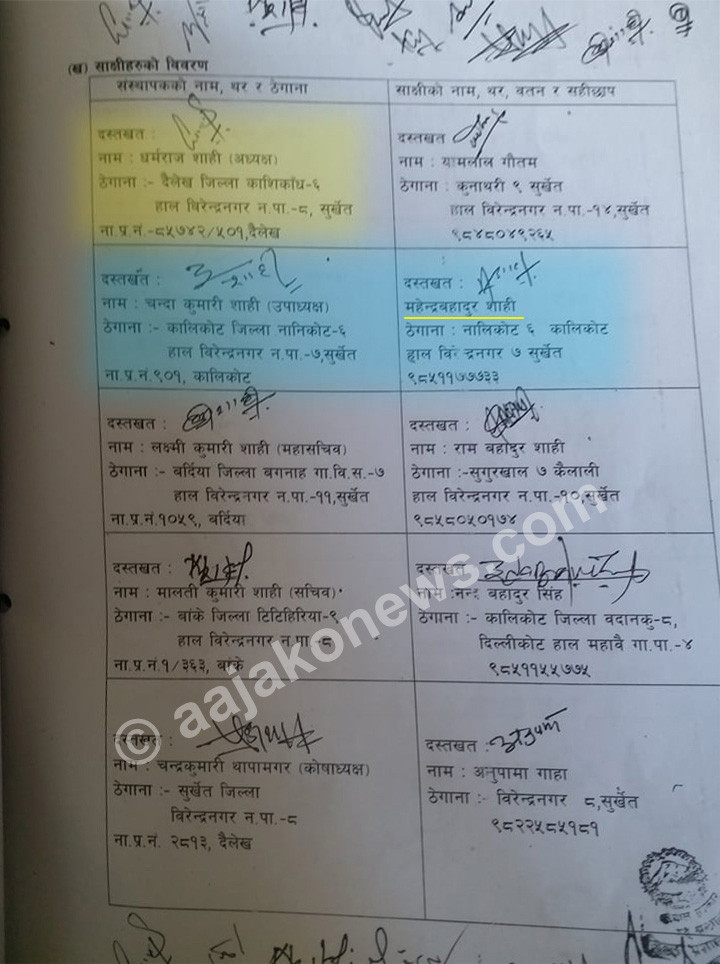 (ख) साक्षीहरुको विवरण
संस्थापकको नाम, थर र ठेगाना
साक्षीको नाम, थर, वतन र सहीछाप
दस्तखत :
नाम : धर्मराज शाही (अध्यक्ष)
ठेगाना :- दैलेख जिल्ला काशिकाँध-६
हाल विरेन्द्रनगर न.पा.-८, सुर्खेत
ना.प्र.नं.-८५७४२/५०१,दैलेख
दस्तखत :
नाम : यामलाल गौतम
ठेगाना : कुनाथरी ९ सुर्खेत
हाल विरेन्द्रनगर न.पा.-१४,सुर्खेत
९८४८०४९२६५
दस्तखत :
नाम : चन्दा कुमारी शाही (उपाध्यक्ष)
ठेगाना :- कालिकोट जिल्ला नानिकोट-६
हाल विरेन्द्रनगर न.पा.-७,सुर्खेत
ना.प्र.नं.९०१, कालिकोट
दस्तखत :
महेन्द्रबहादुर शाही
ठेगाना : नालिकोट ६ कालिकोट
हाल विरेन्द्रनगर ७ सुर्खेत
९८५११७७७३३
दस्तखत :
नाम : लक्ष्मी कुमारी शाही (महासचिव)
ठेगाना :- बर्दिया जिल्ला बगनाह गा.वि.स.-७
हाल विरेन्द्रनगर न.पा.-११,सुर्खेत
ना.प्र.नं.१०५९, बर्दिया
दस्तखत :
नाम : राम बहादुर शाही
ठेगाना :-सुगुरखाल ७ कैलाली
हाल विरेन्द्रनगर न.पा.-१०,सुर्खेत
९८५८०५०१७४
दस्तखत :
नाम : मालती कुमारी शाही (सचिव)
ठेगाना :- बाँके जिल्ला टिटिहिरिया-९
हाल विरेन्द्रनगर न.पा.-८
ना.प्र.नं.१/३६३, बाँके
दस्तखत :
नाम :नन्द बहादुर सिंह
ठेगाना :- कालिकोट जिल्ला वदानकु-८,
दिल्लीकोट हाल महावै गा.पा.-४
९८५११५५७७५
दस्तखत :
नाम : चन्द्रकुमारी थापामगर (कोषाध्यक्ष)
ठेगाना :- सुर्खेत जिल्ला
विरेन्द्रनगर न.पा.-८
ना.प्र.नं. २८१३, दैलेख
दस्तखत :
नाम : अनुपामा गाहा
ठेगाना :- विरेन्द्रनगर ८,सुर्खेत
९८२२५८५१८१
© aajakonews.com